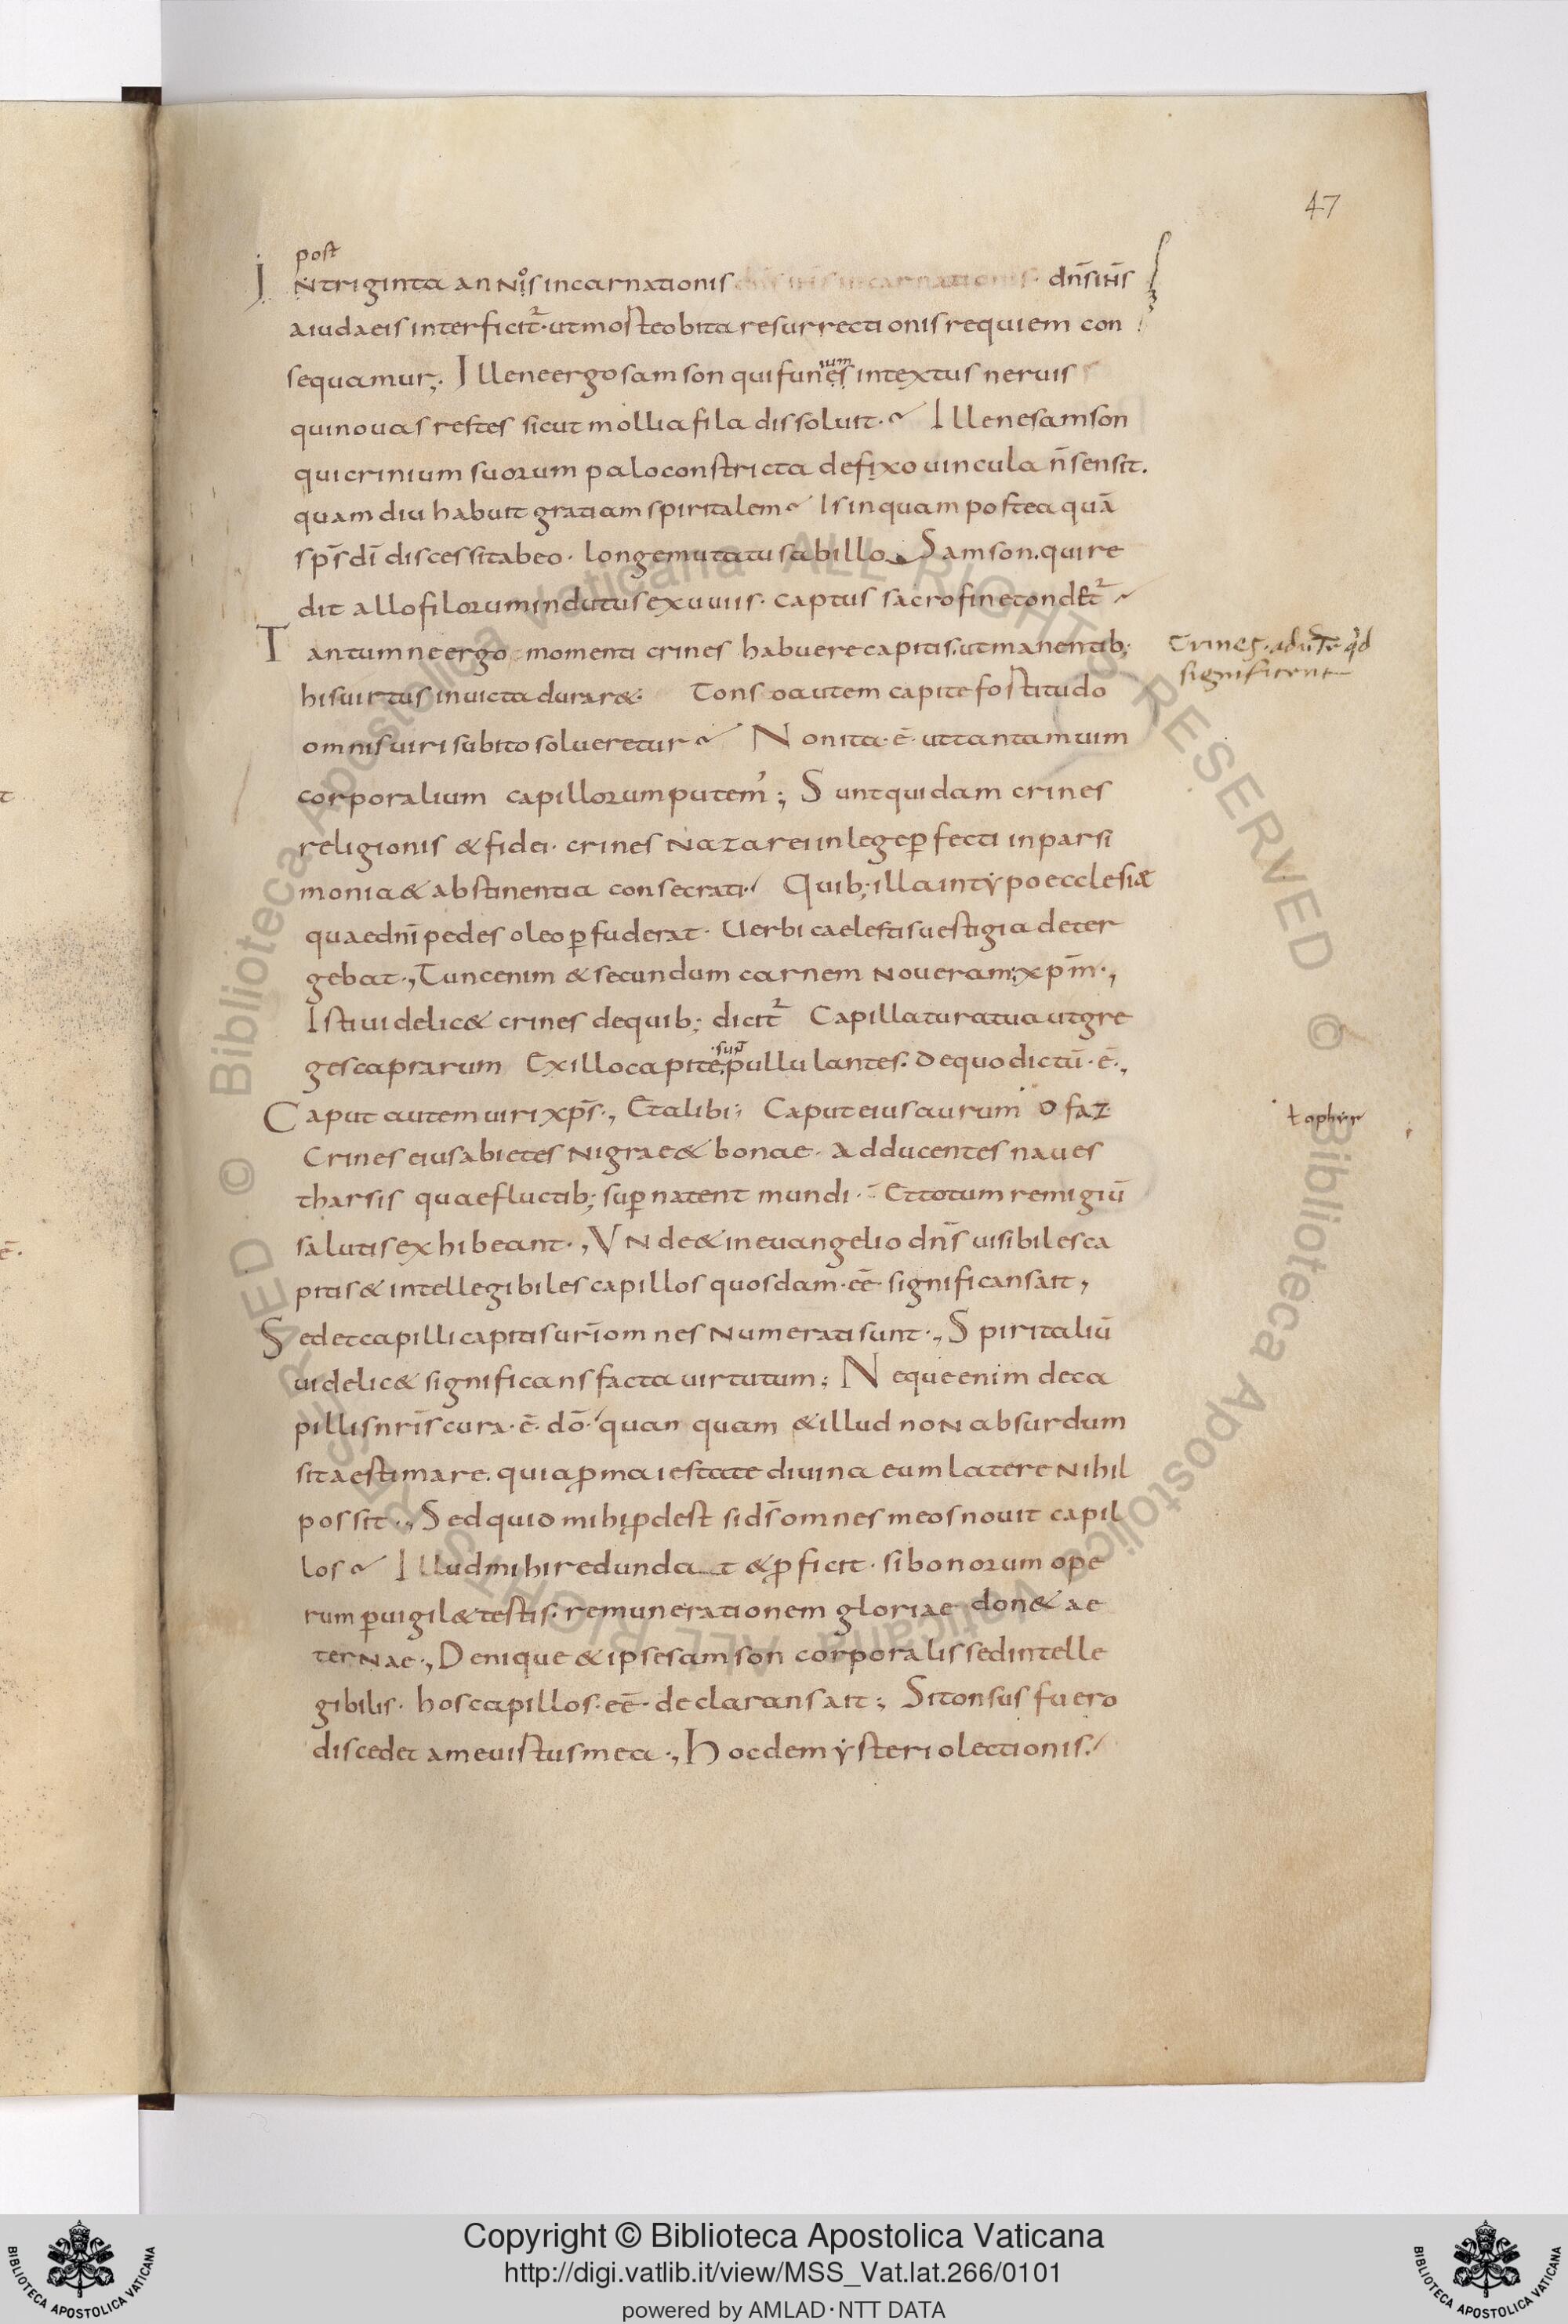 47
post
INtriginta anNiºs incarnationis dn̄s ih̄s incarnationis · dn̄s ih̄s
aiudaeis interficit᷑ · ut morte obita resurrectionis requiem con
sequamur; Illene ergo samson qui funes intextus neruis
ium
qui nouas restes sicut mollia fila dissoluit · Illene samson
qui crinium suorum palo constricta defixo uincula n̄ sensit.
quamdiu habuit gratiam spiritalem Is inquam postea quā
sp̄s dī discessit ab eo · longe mutatus ab illo Samson. qui re
dit allofilorum indutus exuuiis · captus sacro fine tond&t᷑
Tantumne ergo momenti crines habuere capitis. ut manentib;
his uirtus inuicta durar& · Tonso autem capite fortitudo
omnis uiri subito solueretur Non ita · ē · ut tantam uim
corporalium capillorum putem᾽; Sunt quidam crines
religionis & fidei · crines Nazarei in lege ꝑfecti in parsi
monia & abstinentia consecrati · Quib; illa in tẏpo ecclesiæ
quae dnī pedes oleo ꝑfuderat · Uerbi caelestis uestigia deter
gebat ., Tunc enim & secundum carnem Noueram; xp̄m .,
Isti uidelic& crines de quib; dicit᷑ Capillatura tua ut gre
ges caprarum Ex illo capite pullulantes. De quo dictū · ē .,
Caput autem uiri xp̄s ., Et alibi; Caput eius aurum ofaz
Crines eius abietes Nigrae & bonae · Adducentes naues
tharsis quae fluctib; suꝑnatent mundi · Et totum remigiū
salutis exhibeant ., UNde & in euangelio dn̄s uisibiles ca
pitis & intellegibiles capillos quosdam · eē · significans ait,
Sed et capilli capitis urī omnes Numerati sunt ., Spiritaliū
uidelic& significans facta uirtutum; Neque enim de ca
pillis nrīs cura · ē · dō · quanquam & illud noN absurdum
sit aestimare. quia ꝓ maiestate diuina eum latere Nihil
possit ., Sed quid mihi ꝓdest si ds̄ omnes meos nouit capil
los Illud mihi redundat & ꝓficit · si bonorum ope
rum ꝑuigil & testis · remunerationem gloriae don& ae
terNae ., Denique & ipse samson corporalis sed intelle
gibilis · hos capillos · eē · declarans ait; Si tonsus fuero
discedet a me uirtus mea ., Hoc de mẏsterio lectionis.
significent
Copyright © Biblioteca Apostolica Vaticana
http://digi.vatlib.it/view/MSS_Vat.lat.266/0101
powered by AMLAD·NTT DATA
BIBLIOTECA APOSTOLICA VATICANA
BIBLIOTECA APOSTOLICA VATICANA
© Biblioteca Apostolica Vaticana ALL RIGHTS RESERVED
© Biblioteca Apostolica Vaticana ALL RIGHTS RESERVED